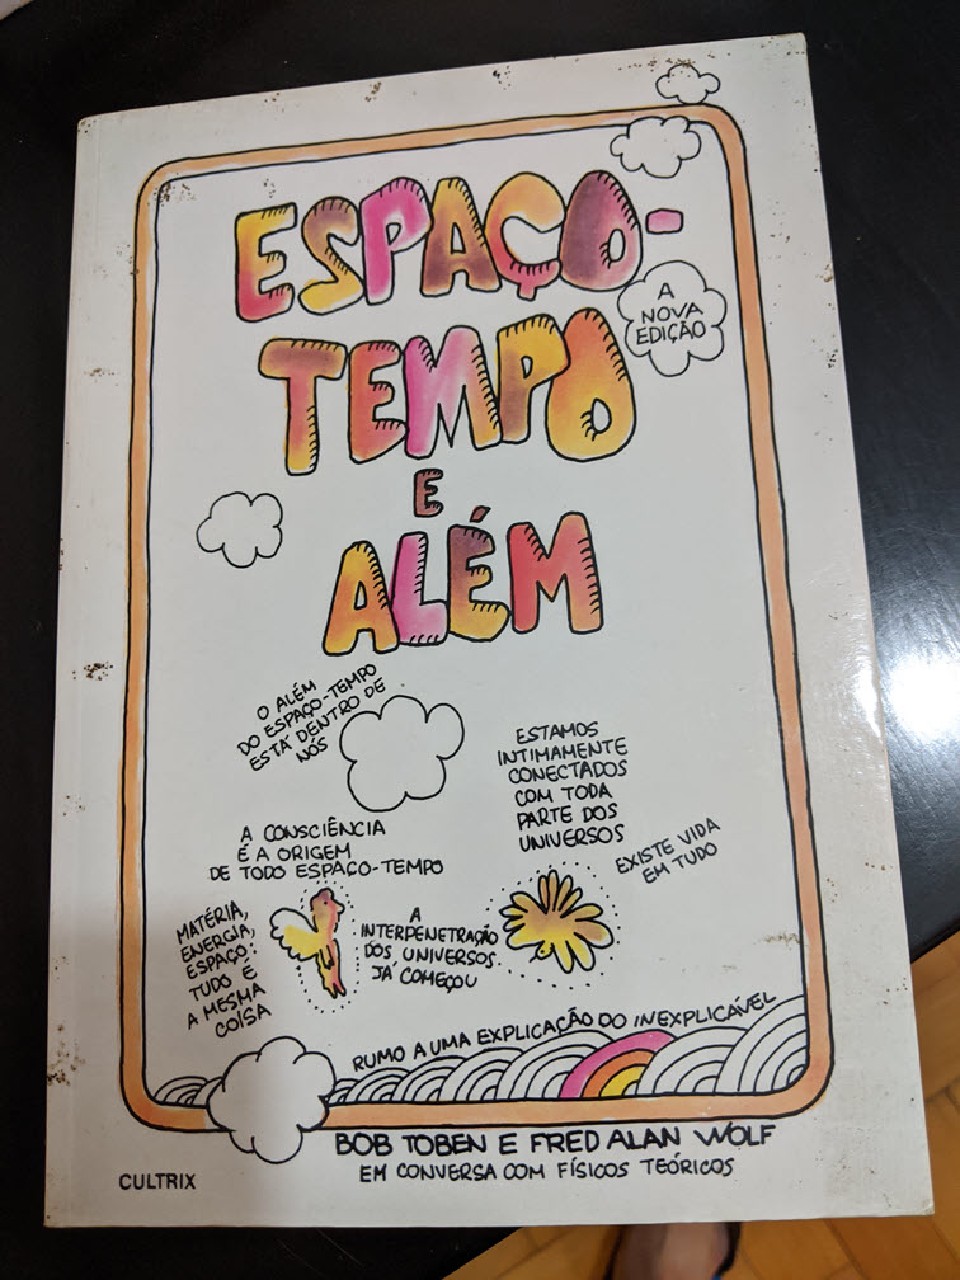 ESPAÇO-
TEMPO
E
ALÉM
A
NOVA
EDIÇÃO
O ALÉM
DO ESPAÇO-TEMPO
ESTÁ DENTRO DE
NÓS
ESTAMOS
INTIMAMENTE
CONECTADOS
COM TODA
PARTE DOS
UNIVERSOS
A CONSCIÊNCIA
É A ORIGEM
DE TODO ESPAÇO-TEMPO
EXISTE VIDA
EM TUDO
MATÉRIA,
ENERGIA,
ESPAÇO:
TUDO É
A MESMA
COISA
A
INTERPENETRAÇÃO
DOS UNIVERSOS
JÁ COMEÇOU
RUMO A UMA EXPLICAÇÃO DO INEXPLICÁVEL
BOB TOBEN E FRED ALAN WOLF
EM CONVERSA COM FÍSICOS TEÓRICOS
CULTRIX